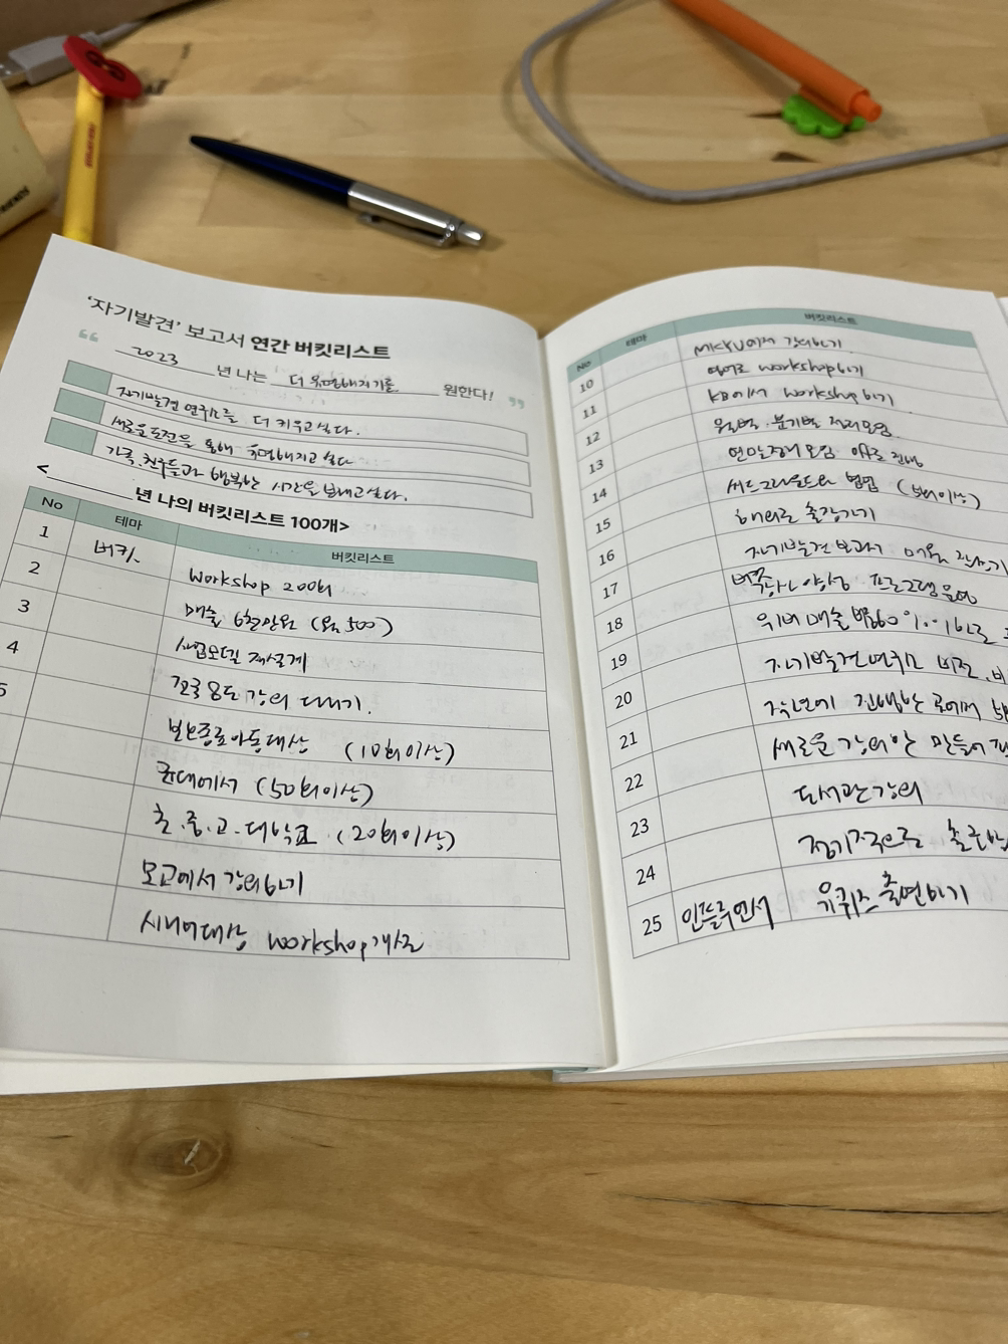 '자기발견' 보고서 연간 버킷리스트
“ 2023 년 나는 더 유명해지기를 원한다! ”
자기발견 연구소를 더 키우고 싶다.
새로운 도전을 통해 유명해지고 싶다
가족, 친구들과 행복한 시간을 보내고 싶다.
< 년 나의 버킷리스트 100개>
No 테마 버킷리스트
1 버키. Workshop 200회
2 매출 6천만원 (월 500)
3 사업모델 재설계
4 전국 8도 강의 다니기.
5 보호종료아동대상 (10회이상)
군대에서 (50회이상)
초.중.고.대학교 (20회이상)
모교에서 강의하기
시니어대상 workshop개소
No 테마 버킷리스트
10 MKYU에서 강의하기
11 영어로 workshop하기
12 KB에서 workshop하기
13 월별·분기별 정리모임
14 연말정산모임 off로 진행
15 (5회이상)
16 해외로 출강가기
17 자기발견보고서
18 양성 프로그램
19 매출 60%
20 자기발견연구소 비전
21 작년에 진행한 곳에서
22 새로운 강의안 만들어
23 도서관강의
24 정기적으로
25 인플루언서 유퀴즈 출연하기